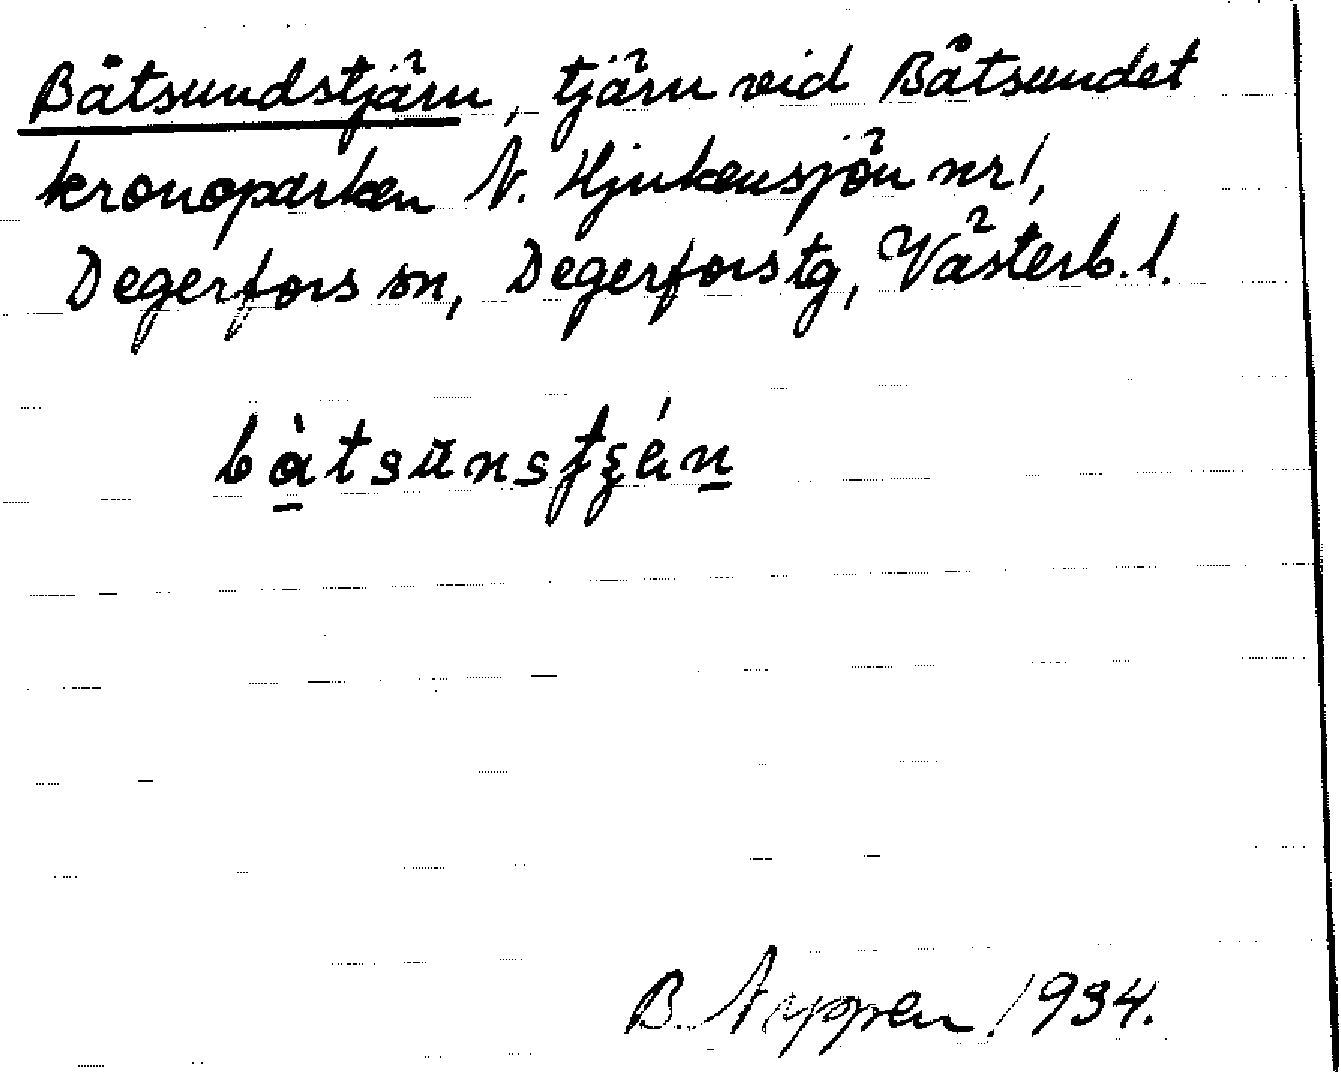 Båtsundstjärn, tjärn vid Båtsundet
kronoparken N. Hjukensjön nr 1,
Degerfors sn, Degerfors tg, Västerb. l.
B. 1934.